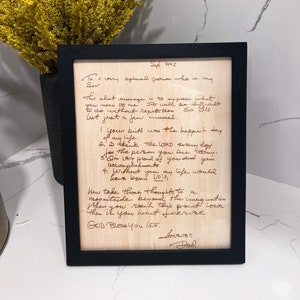 Sept 1992
To a very special person who is my
Son
This short message is to express what
you mean to me. It will be difficult
to do without repetition. So I'll
list just a few numeral
1 your birth was the happiest day
of my life
2 I thank the LORD every day
for the person you are today
3 I'm very proud of you and your
accomplishments
4 without you my life would
have been Void
Now take those thoughts to a
magnitude beyond the imagination
then you reach this point LOVE
then in you
GOD BLESS YOU LEE
Forever
Dad